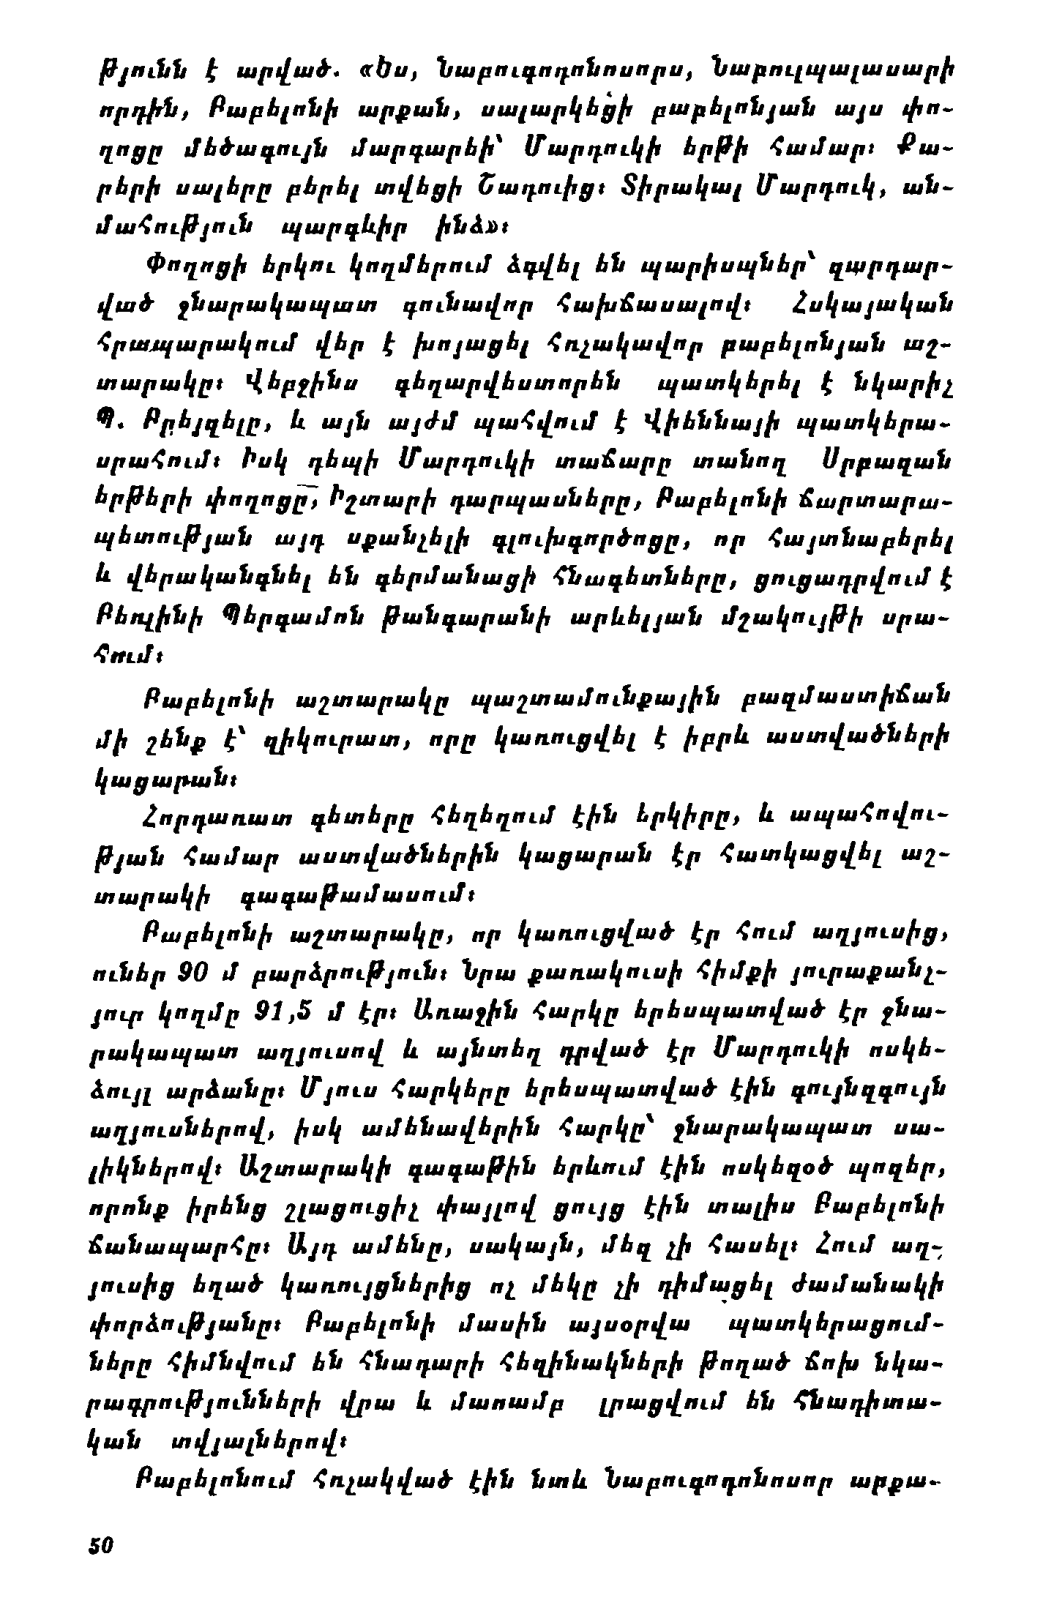 թյունն է արված. «Ես, Նաբուգոդոնոսորս, Նաբուլպալասարի
որդին, Բաբելոնի արքան, սալարկեցի բաբելոնյան այս փո-
ղոցը մեծագույն մարգարեի՝ Մարդուկի երթի համար։ Քա-
րերի սալերը բերել տվեցի Շադուից։ Տիրակալ Մարդուկ, ան-
մահություն պարգևիր ինձ»։
Փողոցի երկու կողմերում ձգվել են պարիսպներ՝ զարդար-
ված ջնարակապատ գունավոր հախճասալով։ Հսկայական
հրապարակում վեր է խոյացել հռչակավոր բաբելոնյան աշ-
տարակը։ Վեբջինս գեղարվեստորեն պատկերել է նկարիչ
Պ. Բրեյգելը, և այն այժմ պահվում է Վիեննայի պատկերա-
սրահում։ Իսկ դեպի Մարդուկի տաճարը տանող Սրբազան
երթերի փողոցը, Իշտարի դարպասները, Բաբելոնի ճարտարա-
պետության այդ սքանչելի գլուխգործոցը, որ հայտնաբերել
և վերականգնել են գերմանացի հնագետները, ցուցադրվում է
Բեռլինի Պերգամոն թանգարանի արևելյան մշակույթի սրա-
հում։
Բաբելոնի աշտարակը պաշտամունքային բազմաստիճան
մի շենք է՝ զիկուրատ, որը կառուցվել է իբրև աստվածների
կացարան։
Հորդառատ գետերը հեղեղում էին երկիրը, և ապահովու-
թյան համար աստվածներին կացարան էր հատկացվել աշ-
տարակի գագաթամասում։
Բաբելոնի աշտարակը, որ կառուցված էր հում աղյուսից,
ուներ 90 մ բարձրություն։ Նրա քառակուսի հիմքի յուրաքանչ-
յուր կողմը 91,5 մ էր։ Առաջին հարկը երեսպատված էր ջնա-
րակապատ աղյուսով և այնտեղ դրված էր Մարդուկի ոսկե-
ձույլ արձանը։ Մյուս հարկերը երեսպատված էին գույնզգույն
աղյուսներով, իսկ ամենավերին հարկը՝ ջնարակապատ սա-
լիկներով։ Աշտարակի գագաթին երևում էին ոսկեզօծ պոզեր,
որոնք իրենց շլացուցիչ փայլով ցույց էին տալիս Բաբելոնի
ճանապարհը։ Այդ ամենը, սակայն, մեզ չի հասել։ Հում աղ-
յուսից եղած կառույցներից ոչ մեկը չի դիմացել ժամանակի
փորձությանը։ Բաբելոնի մասին այսօրվա պատկերացում-
ները հիմնվում են հնադարի հեղինակների թողած ճոխ նկա-
րագրությունների վրա և մասամբ լրացվում են հնադիտա-
կան տվյալներով։
Բաբելոնում հռչակված էին նտև Նաբուգոդոնոսոր արքա-
50